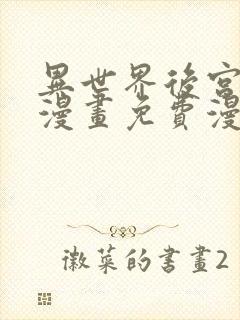 異世界後宮
漫畫免費漫
徽菜的書畫2